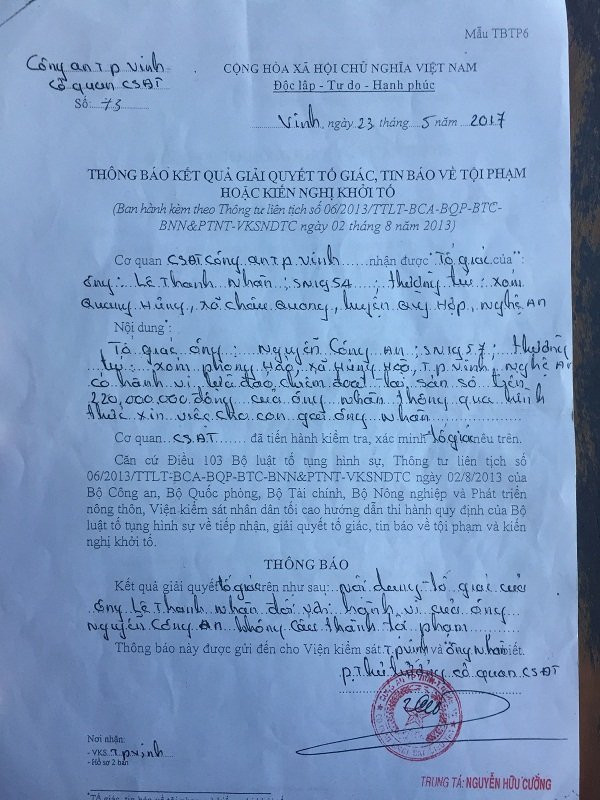 Mẫu TBTP6
Công an T.p Vinh
Cơ quan CSĐT
Số: 73
CỘNG HÒA XÃ HỘI CHỦ NGHĨA VIỆT NAM
Độc lập - Tự do - Hạnh phúc
Vinh, ngày 23 tháng 5 năm 2017
THÔNG BÁO KẾT QUẢ GIẢI QUYẾT TỐ GIÁC, TIN BÁO VỀ TỘI PHẠM
HOẶC KIẾN NGHỊ KHỞI TỐ
(Ban hành kèm theo Thông tư liên tịch số 06/2013/TTLT-BCA-BQP-BTC-
BNN&PTNT-VKSNDTC ngày 02 tháng 8 năm 2013)
Cơ quan CSĐT Công an T.p Vinh nhận được Tố giác của:
ông: Lê Thanh Nhàn; SN1954; thường trú: xóm
Quang Hưng, xã Châu Quang, huyện Quỳ Hợp, Nghệ An
Nội dung:
Tố giác ông: Nguyễn Công An; SN1957; thường
trú: xóm phong Hảo, xã Hưng Hòa, T.p Vinh, Nghệ An
có hành vi lừa đảo, chiếm đoạt tài sản số tiền
220,000,000 đồng của ông Nhàn thông qua hình
thức xin việc cho con gái ông Nhàn
Cơ quan CSĐT đã tiến hành kiểm tra, xác minh tố giác nêu trên.
Căn cứ Điều 103 Bộ luật tố tụng hình sự, Thông tư liên tịch số
06/2013/TTLT-BCA-BQP-BTC-BNN&PTNT-VKSNDTC ngày 02/8/2013 của
Bộ Công an, Bộ Quốc phòng, Bộ Tài chính, Bộ Nông nghiệp và Phát triển
nông thôn, Viện kiểm sát nhân dân tối cao hướng dẫn thi hành quy định của Bộ
luật tố tụng hình sự về tiếp nhận, giải quyết tố giác, tin báo về tội phạm và kiến
nghị khởi tố.
THÔNG BÁO
Kết quả giải quyết tố giác trên như sau: nội dung tố giác của
ông Lê Thanh Nhàn đối với hành vi của ông
Nguyễn Công An không cấu thành tội phạm
Thông báo này được gửi đến cho Viện kiểm sát T.p Vinh và ông Nhàn biết.
p. Thủ trưởng cơ quan CSĐT
Nơi nhận:
- VKS T.p Vinh
- Hồ sơ 2 bản
TRUNG TÁ: NGUYỄN HỮU CƯỜNG